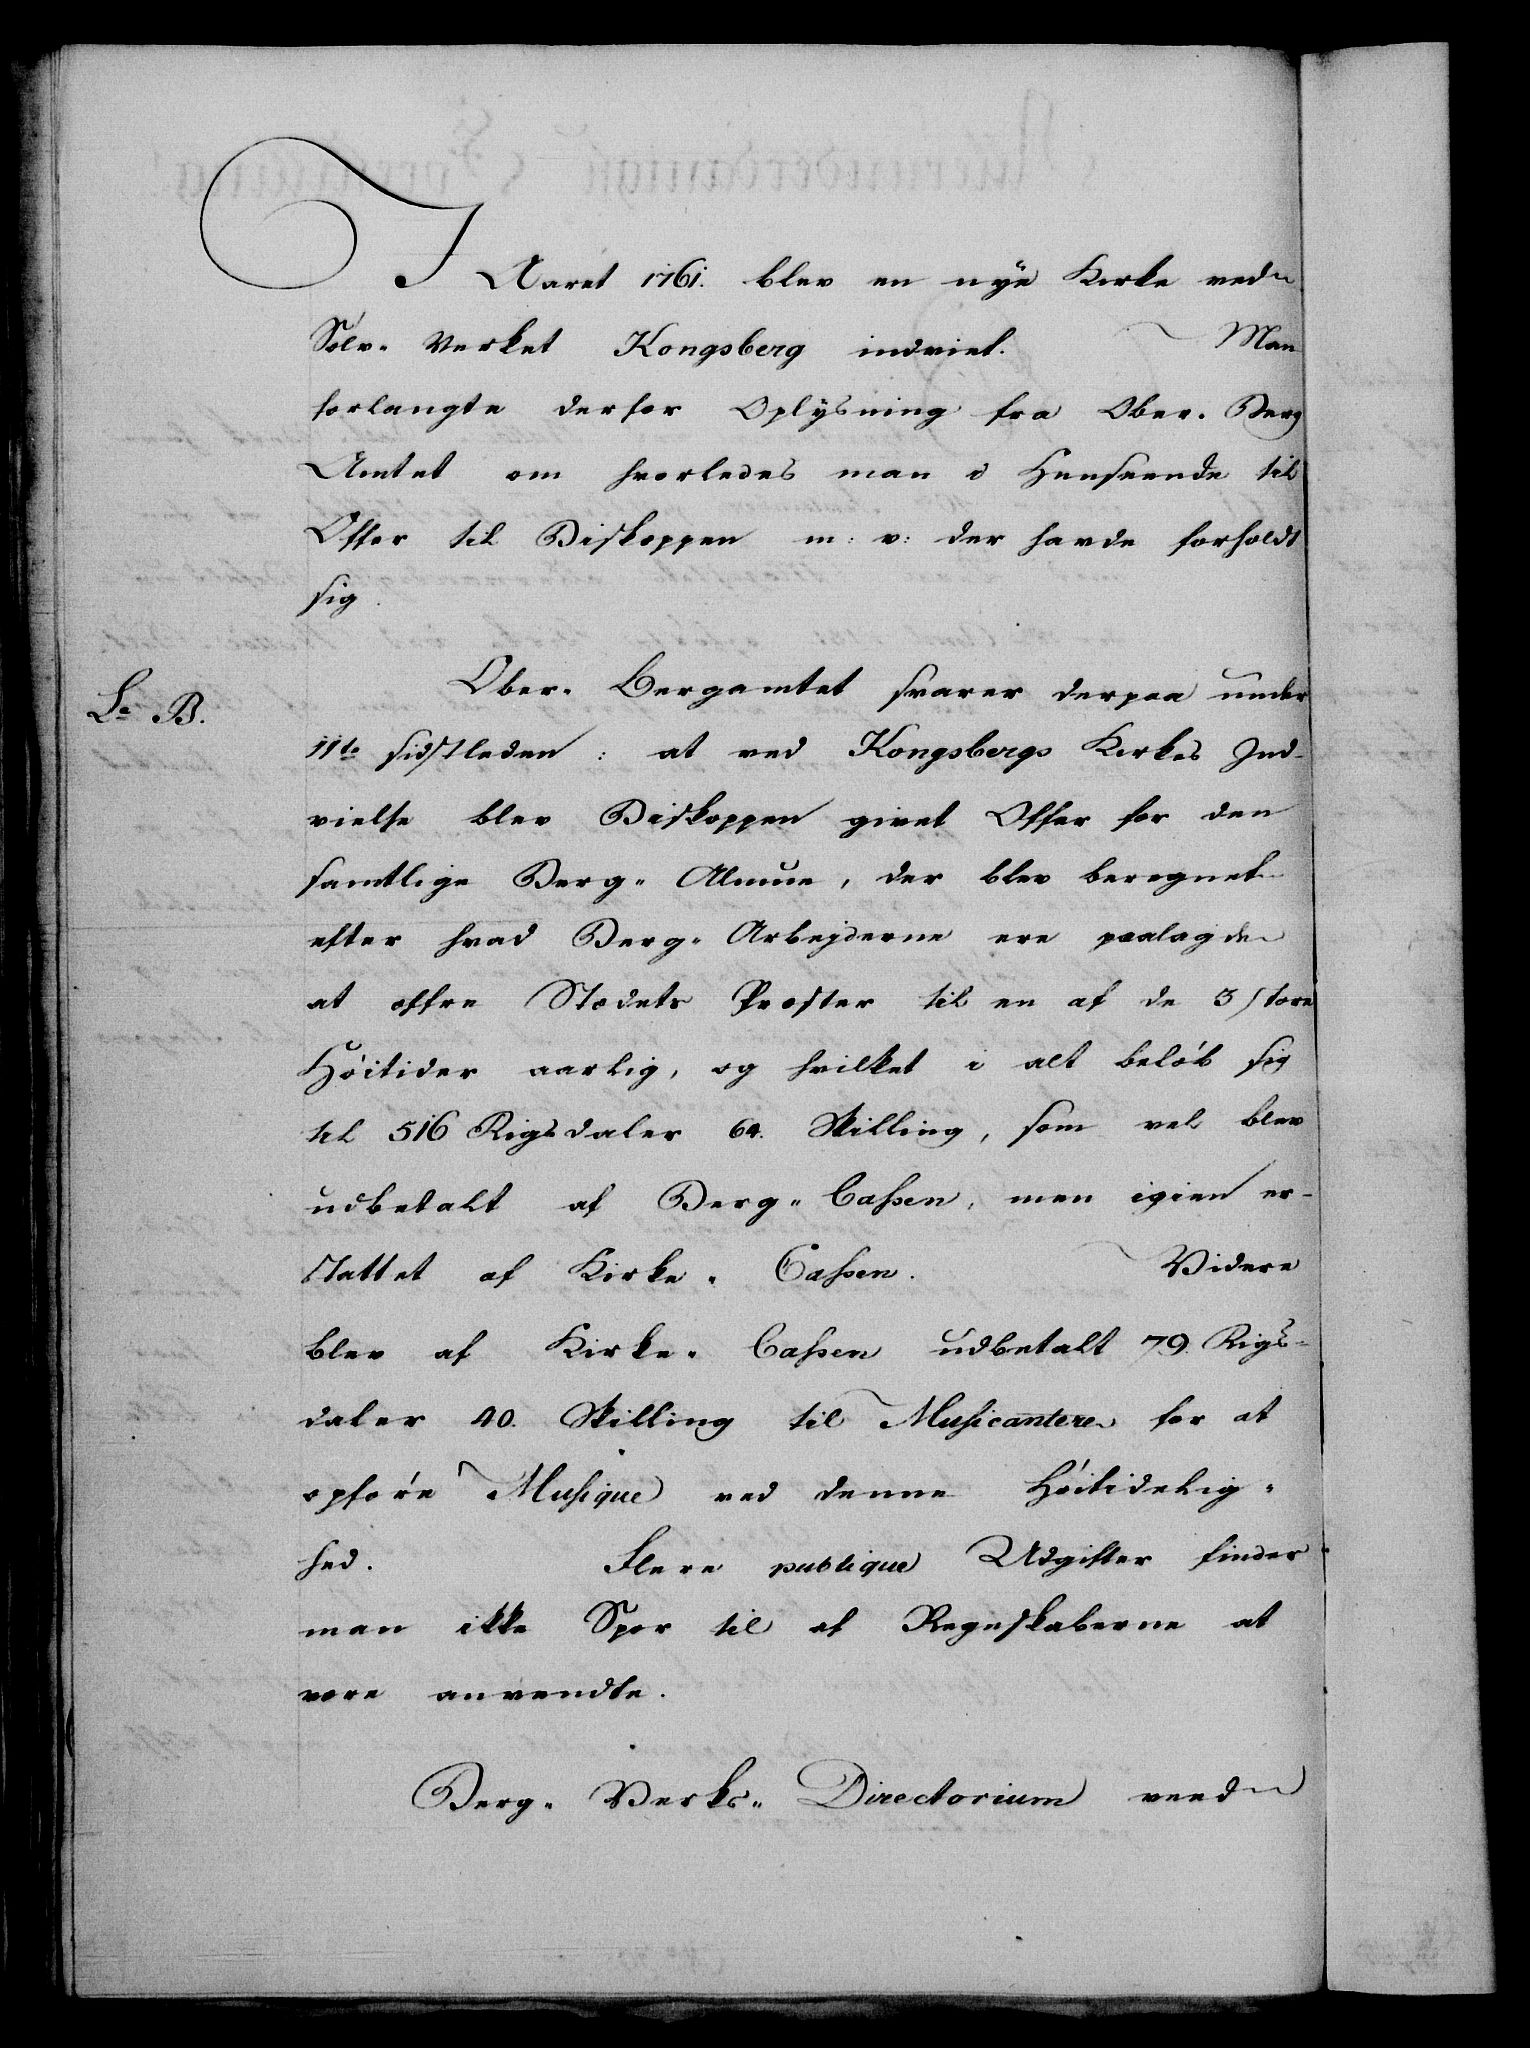 I Aaret 1761. blev en nye Kirke ved
Sølv- Verket Kongsberg indviet. Man
forlangte derfor Oplysning fra Ober- Berg
Amtet om hvorledes man i Henseende til
Offer til Biskoppen m: v: der havde forholdt
sig.
La B.
Ober- Bergamtet svarer derpaa under
11te sidstleden: at ved Kongsbergs Kirkes Ind-
vielse blev Biskoppen givet Offer for den
samtlige Berg- Almue, der blev beregnet
efter hvad Berg- Arbejderne ere paalagde
at offre Stædets Præster til en af de 3 store
Höitider aarlig, og hvilket i alt beløb sig
til 516 Rigsdaler 64. Skilling, som vel blev
udbetalt af Berg- Cassen, men igien er-
stattet af Kirke- Cassen. Videre
blev af Kirke- Cassen udbetalt 79. Rigs-
daler 40. Skilling til Musicantere for at
opføre Musique ved denne Höitidelig-
hed. Flere publique Udgifter finder
man ikke Spor til af Regnskaberne at
være anvendte.
Berg- Verks- Directorium veed